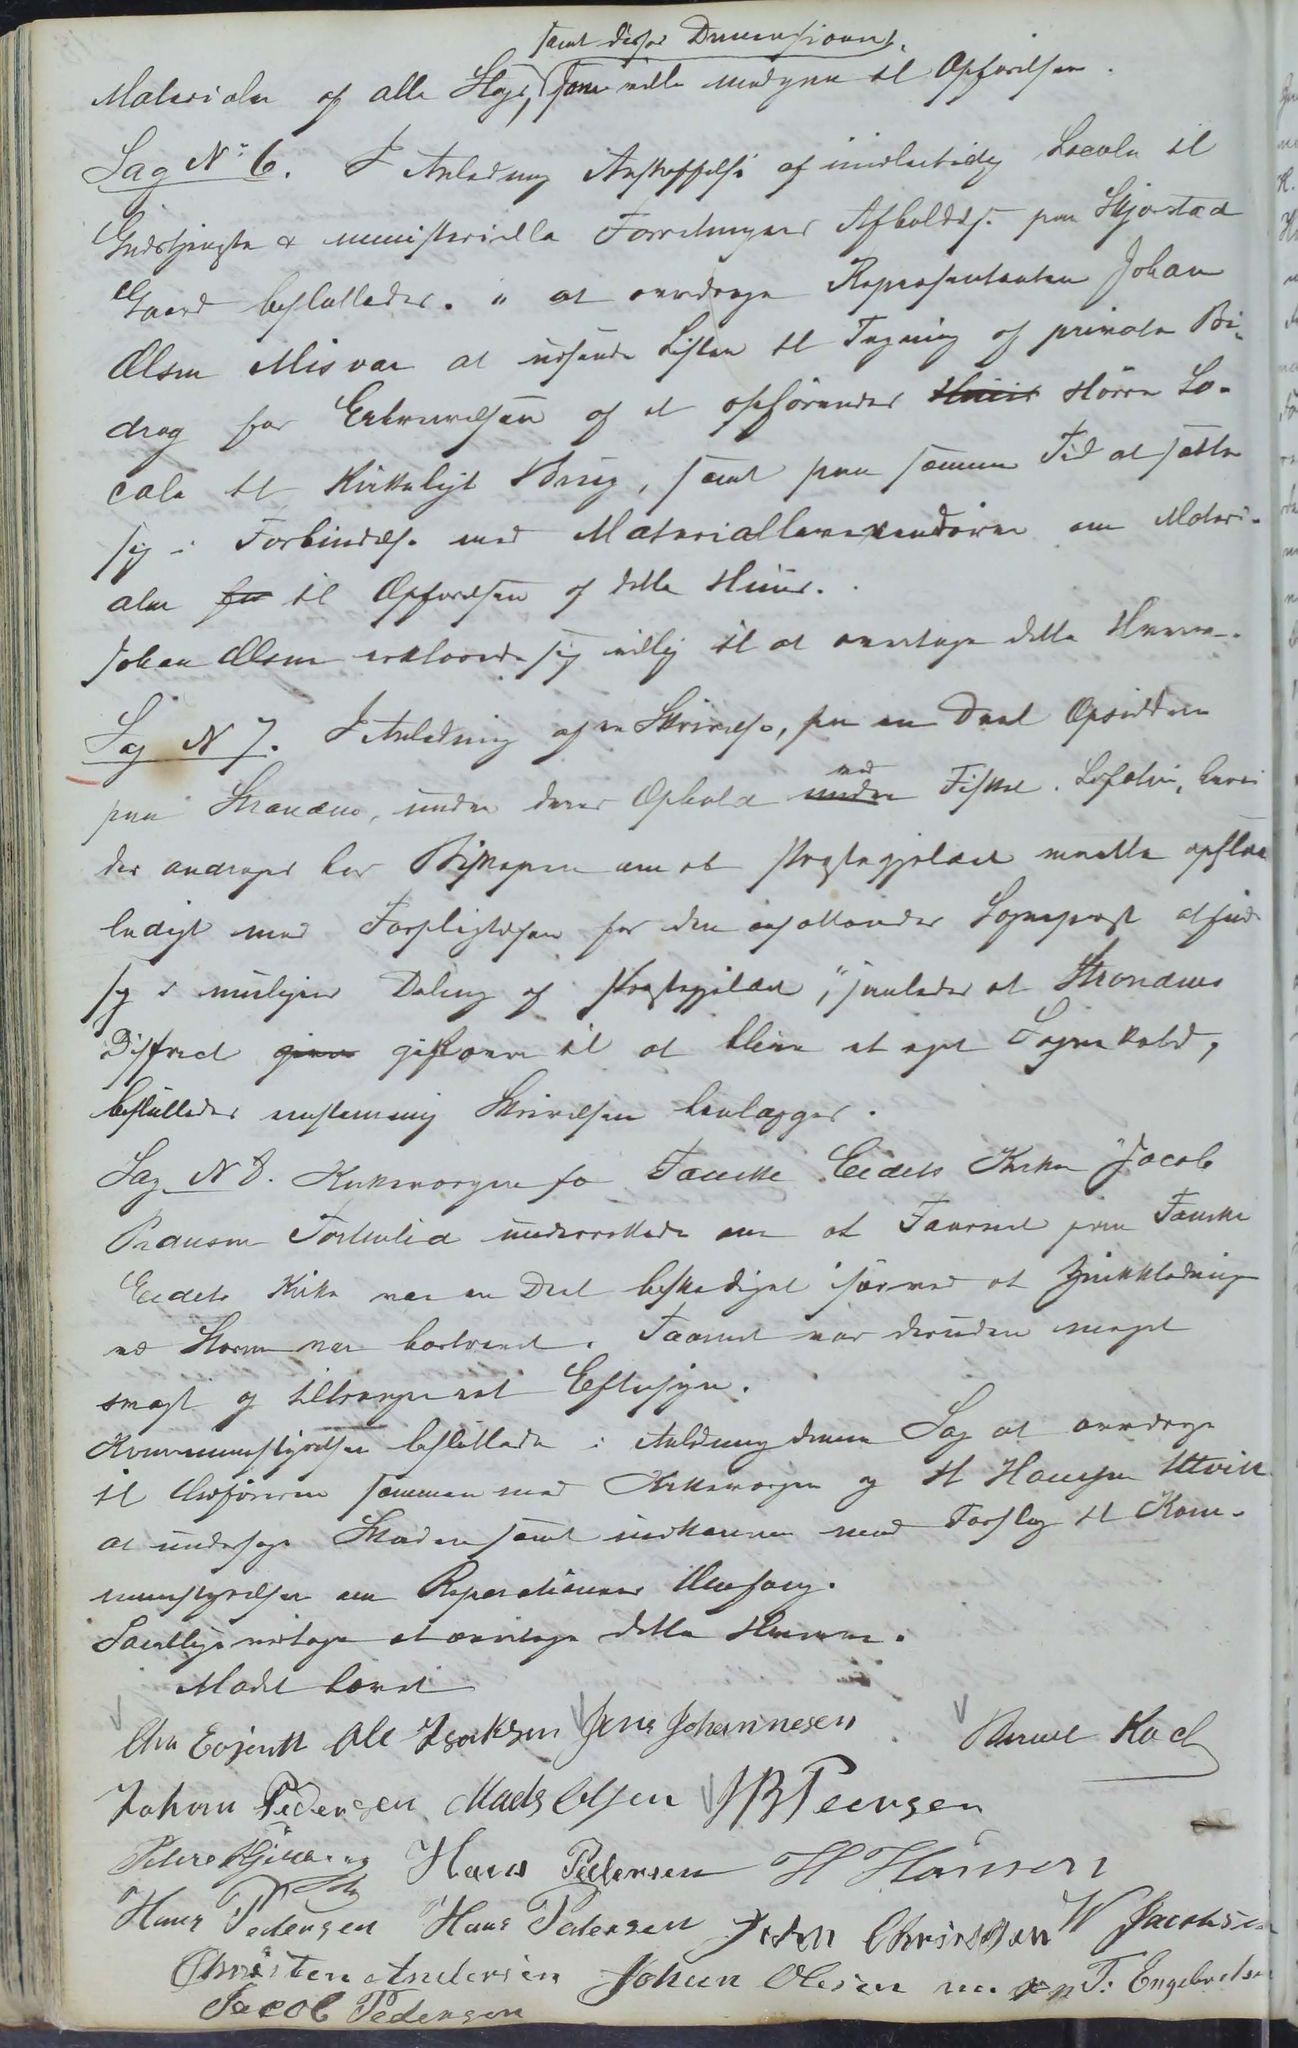 samt disses Dimensioner,
Materialer af alle Slags, som ville medgaa til Opførelsen.
Sag No 6. I Anledning Anskaffelse af midlertidig Locale til
Gudstjeneste & ministerielle Forretningers Afholdelse paa Skjerstad
Gaard besluttedes. " at overdrage Repræsentanten Johan
Olsen Misvær at udsende Lister til Tegning af private Bi-
drag for Erhvervelsen af et opførendes Huus større Lo-
cale til Kirkeligt Brug, samt paa samme Tid at sætte
sig i Forbindelse med Materialleverandører om Materi-
aler for til Opførelsen af dette Huus.
Johan Olsen erklærede sig villig til at overtage dette Hverv.
Sag N 7. I Anledning af en Skrivelse, fra en Deel Opsiddere
paa Strandens, under deres Ophold under ved Fiskeri Lofoten, hvori
der andrages hos Biskopen om at Præstegjeldet maatte opslaaes
ledigt med Forpligtelse for den ansættendes Sognepræst at finde
sig i mulig Deling af Præstegjeldet, " saaledes at Strandens
Distrect gives gik over til at blive et eget Sognekald,
besluttedes enstemmig Skrivelsen henlægges.
Sag N 8. Kirkeværgen for Fauske Eidets Kirke Jacob
Pedersen underrettede om at Taarnet paa Fauske
Eidets Kirke var en Deel beskadiget især ved at Zinkklædningen
ved Storm var bortrevet. Taarnet var desuden meget
svagt og tiltrænger et Eftersyn.
Kommunestyrelsen besluttede i Anledning denne Sag at overdrage
til Ordføreren sammen med Kirkeværgen og H Hansen Utvik
at undersøge Skaden samt indkomme med Forslag til Kom-
munestyrelsen om Reparationens Omfang.
Samtlige vedtoge at overtage dette Hverv.
Mødet hævet
Chr Evjenth Ole Isaksen Jens Johannesen Koch
Johan Pedersen Mads Olsen J B Peersen
Hans Pedersen H Hansen
Hans Pedersen Hans Pedersen John Christensen W Jacobsen
Christen Andersen Johan Olesen m. p. P. T. Engebretsen
Jacob Pedersen